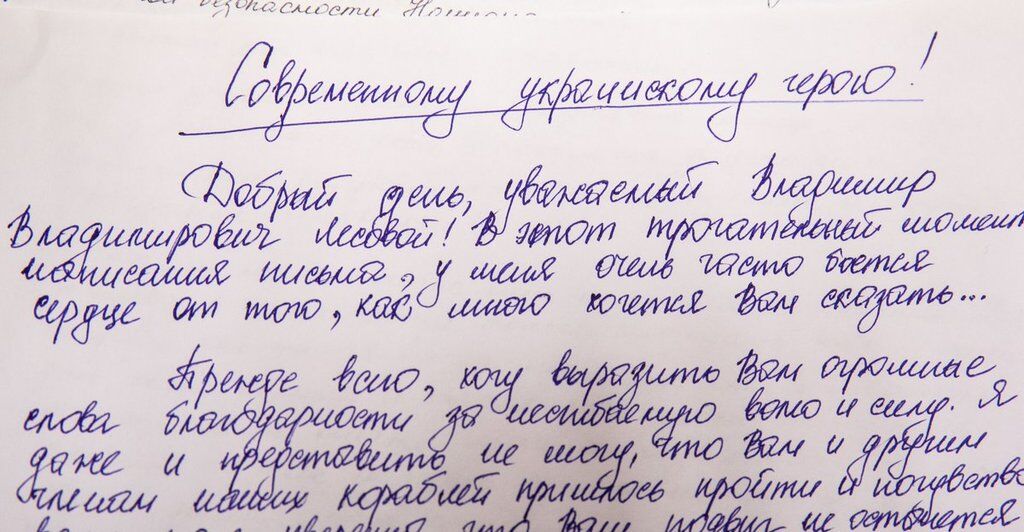 безопасности
Современному украинскому герою!
Добрый день, уважаемый Владимир
Владимирович Лесовой! В этот трогательный момент
написания письма, у меня очень часто бьется
сердце от того, как много хочется Вам сказать...
Прежде всего, хочу выразить Вам огромные
слова благодарности за несгибаемую волю и силу. Я
даже и представить не могу, что Вам и другим
членам наших кораблей пришлось пройти и почувство
уверена, что Ваш подвиг не останется